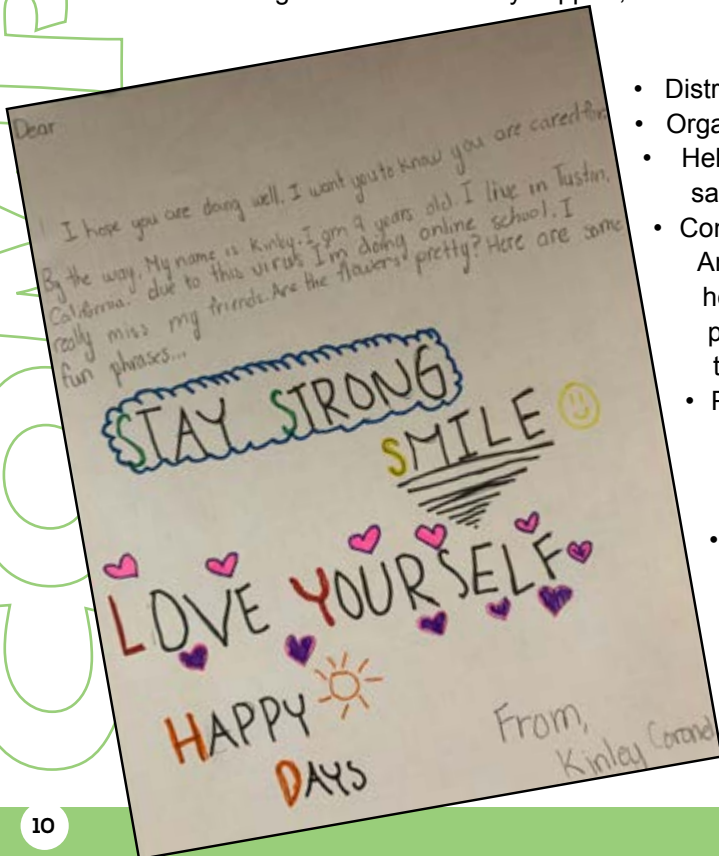 Dear
I hope you are doing well. I want you to know you are cared for.
By the way, My name is Kinly. I am 9 years old. I live in Tustin,
California. due to this virus I'm doing online school. I
really miss my friends. Are the flowers pretty? Here are some
fun phrases...
STAY STRONG
SMILE
LOVE YOURSELF
HAPPY
DAYS
From,
Kinley Coronel
• Distr
• Orga
• Hel
sa
• Con
An
he
p
t
10